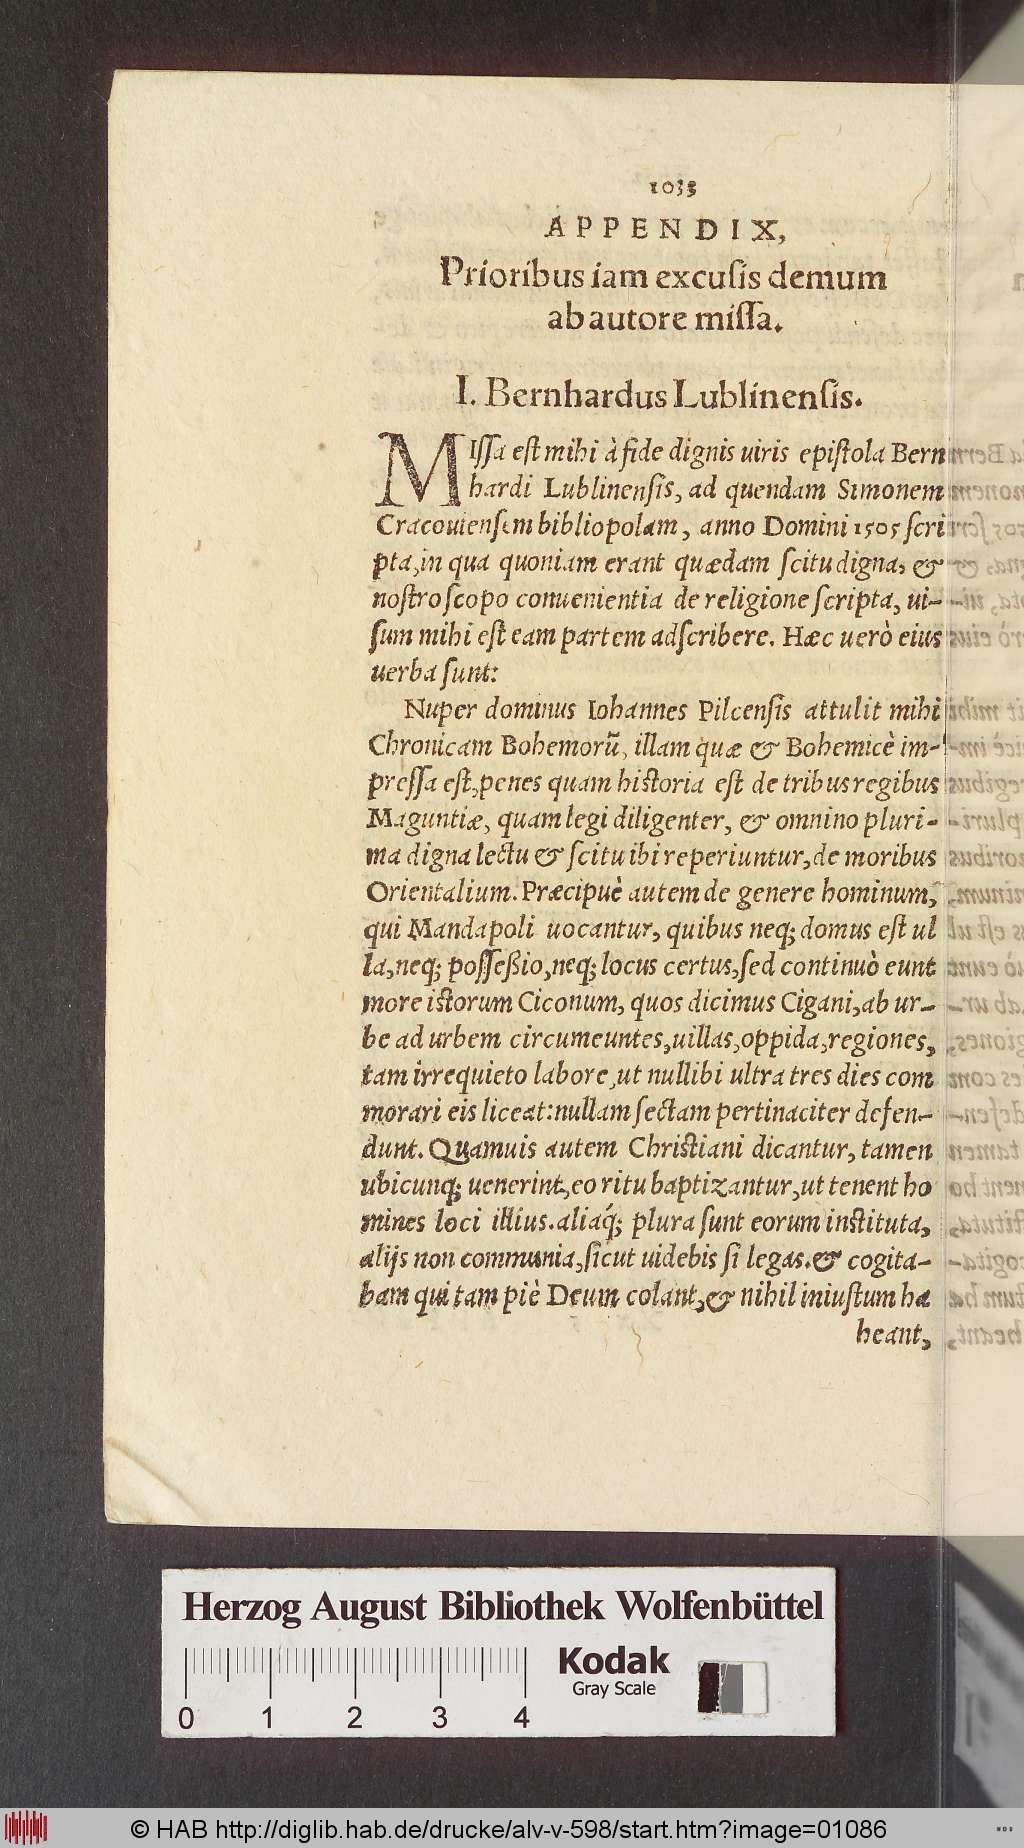 1035
APPENDIX,
Prioribus iam excusis demum
ab autore missa.
I. Bernhardus Lublinensis.
MIssa est mihi à fide dignis uiris epistola Bern
hardi Lublinensis, ad quendam Simonem
Cracouiensem bibliopolam, anno Domini 1505 scri
pta, in qua quoniam erant quædam scitu digna, &
nostro scopo conuenientia de religione scripta, ui-
sum mihi est eam partem adscribere. Hæc uerò eius
uerba sunt:
Nuper dominus Iohannes Pilcensis attulit mihi
Chronicam Bohemorũ, illam quæ & Bohemicè im-
pressa est, penes quam historia est de tribus regibus
Maguntiæ, quam legi diligenter, & omnino pluri-
ma digna lectu & scitu ibi reperiuntur, de moribus
Orientalium. Præcipuè autem de genere hominum,
qui Mandapoli uocantur, quibus neq; domus est ul
la, neq; possessio, neq; locus certus, sed continuò eunt
more istorum Ciconum, quos dicimus Cigani, ab ur-
be ad urbem circumeuntes, uillas, oppida, regiones,
tam irrequieto labore, ut nullibi ultra tres dies com
morari eis liceat: nullam sectam pertinaciter defen-
dunt. Quamuis autem Christiani dicantur, tamen
ubicunq; uenerint, eo ritu baptizantur, ut tenent ho
mines loci illius. aliaq́; plura sunt eorum instituta,
alijs non communia, sicut uidebis si legas. & cogita-
bam qui tam piè Deum colant, & nihil iniustum ha
beant,
Herzog August Bibliothek Wolfenbüttel
Kodak
Gray Scale
0 1 2 3 4
© HAB http://diglib.hab.de/drucke/alv-v-598/start.htm?image=01086